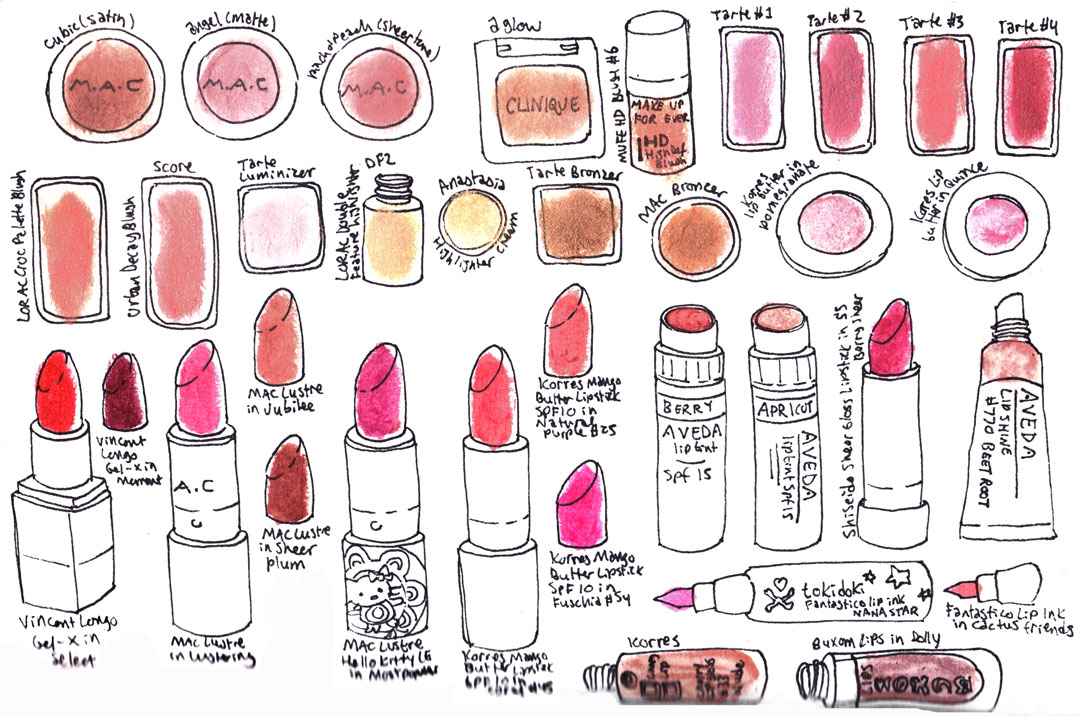 cubic (satin)
M.A.C
angel (matte)
M.A.C
M.A.C
aglow
CLINIQUE
MUFE HD BLUSH #6
MAKE UP
FOR EVER
HD
High Def
Blush
Tarte #1
Tarte #2
Tarte #3
Tarte #4
LORAC Croc Palette Blush
Urban Decay Blush
Score
Tarte
Luminizer
LORAC Double
Feature Highlighter
DF2
Anastasia
Highlighter Cream
Tarte Bronzer
MAC Bronzer
Korres
lip butter in
pomegranate
Korres Lip
butter in Quince
Vincent Longo
Gel-X in
Select
Vincent
Longo
Gel-X in
A.C
MAC Lustre
in Lustering
MAC Lustre
in Jubilee
MAC Lustre
in Sheer
plum
MAC Lustre
Hello Kitty LE
in Most popular
Korres Mango
Butter Lipstick
SPF 10 in
Korres Mango
Butter Lipstick
SPF 10 in
Natural
purple #25
Korres Mango
Butter Lipstick
SPF 10 in
Fuschia #54
BERRY
AVEDA
lip tint
spf 15
APRICOT
AVEDA
lip tint spf 15
Shiseido Sheer Gloss Lipstick in S5
Berry Sheer
AVEDA
Lip SHINE
#770 BEET ROOT
tokidoki
Fantastico lip ink
NANA STAR
Fantastico Lip Ink
in cactus friends
Korres
Buxom Lips in Dolly